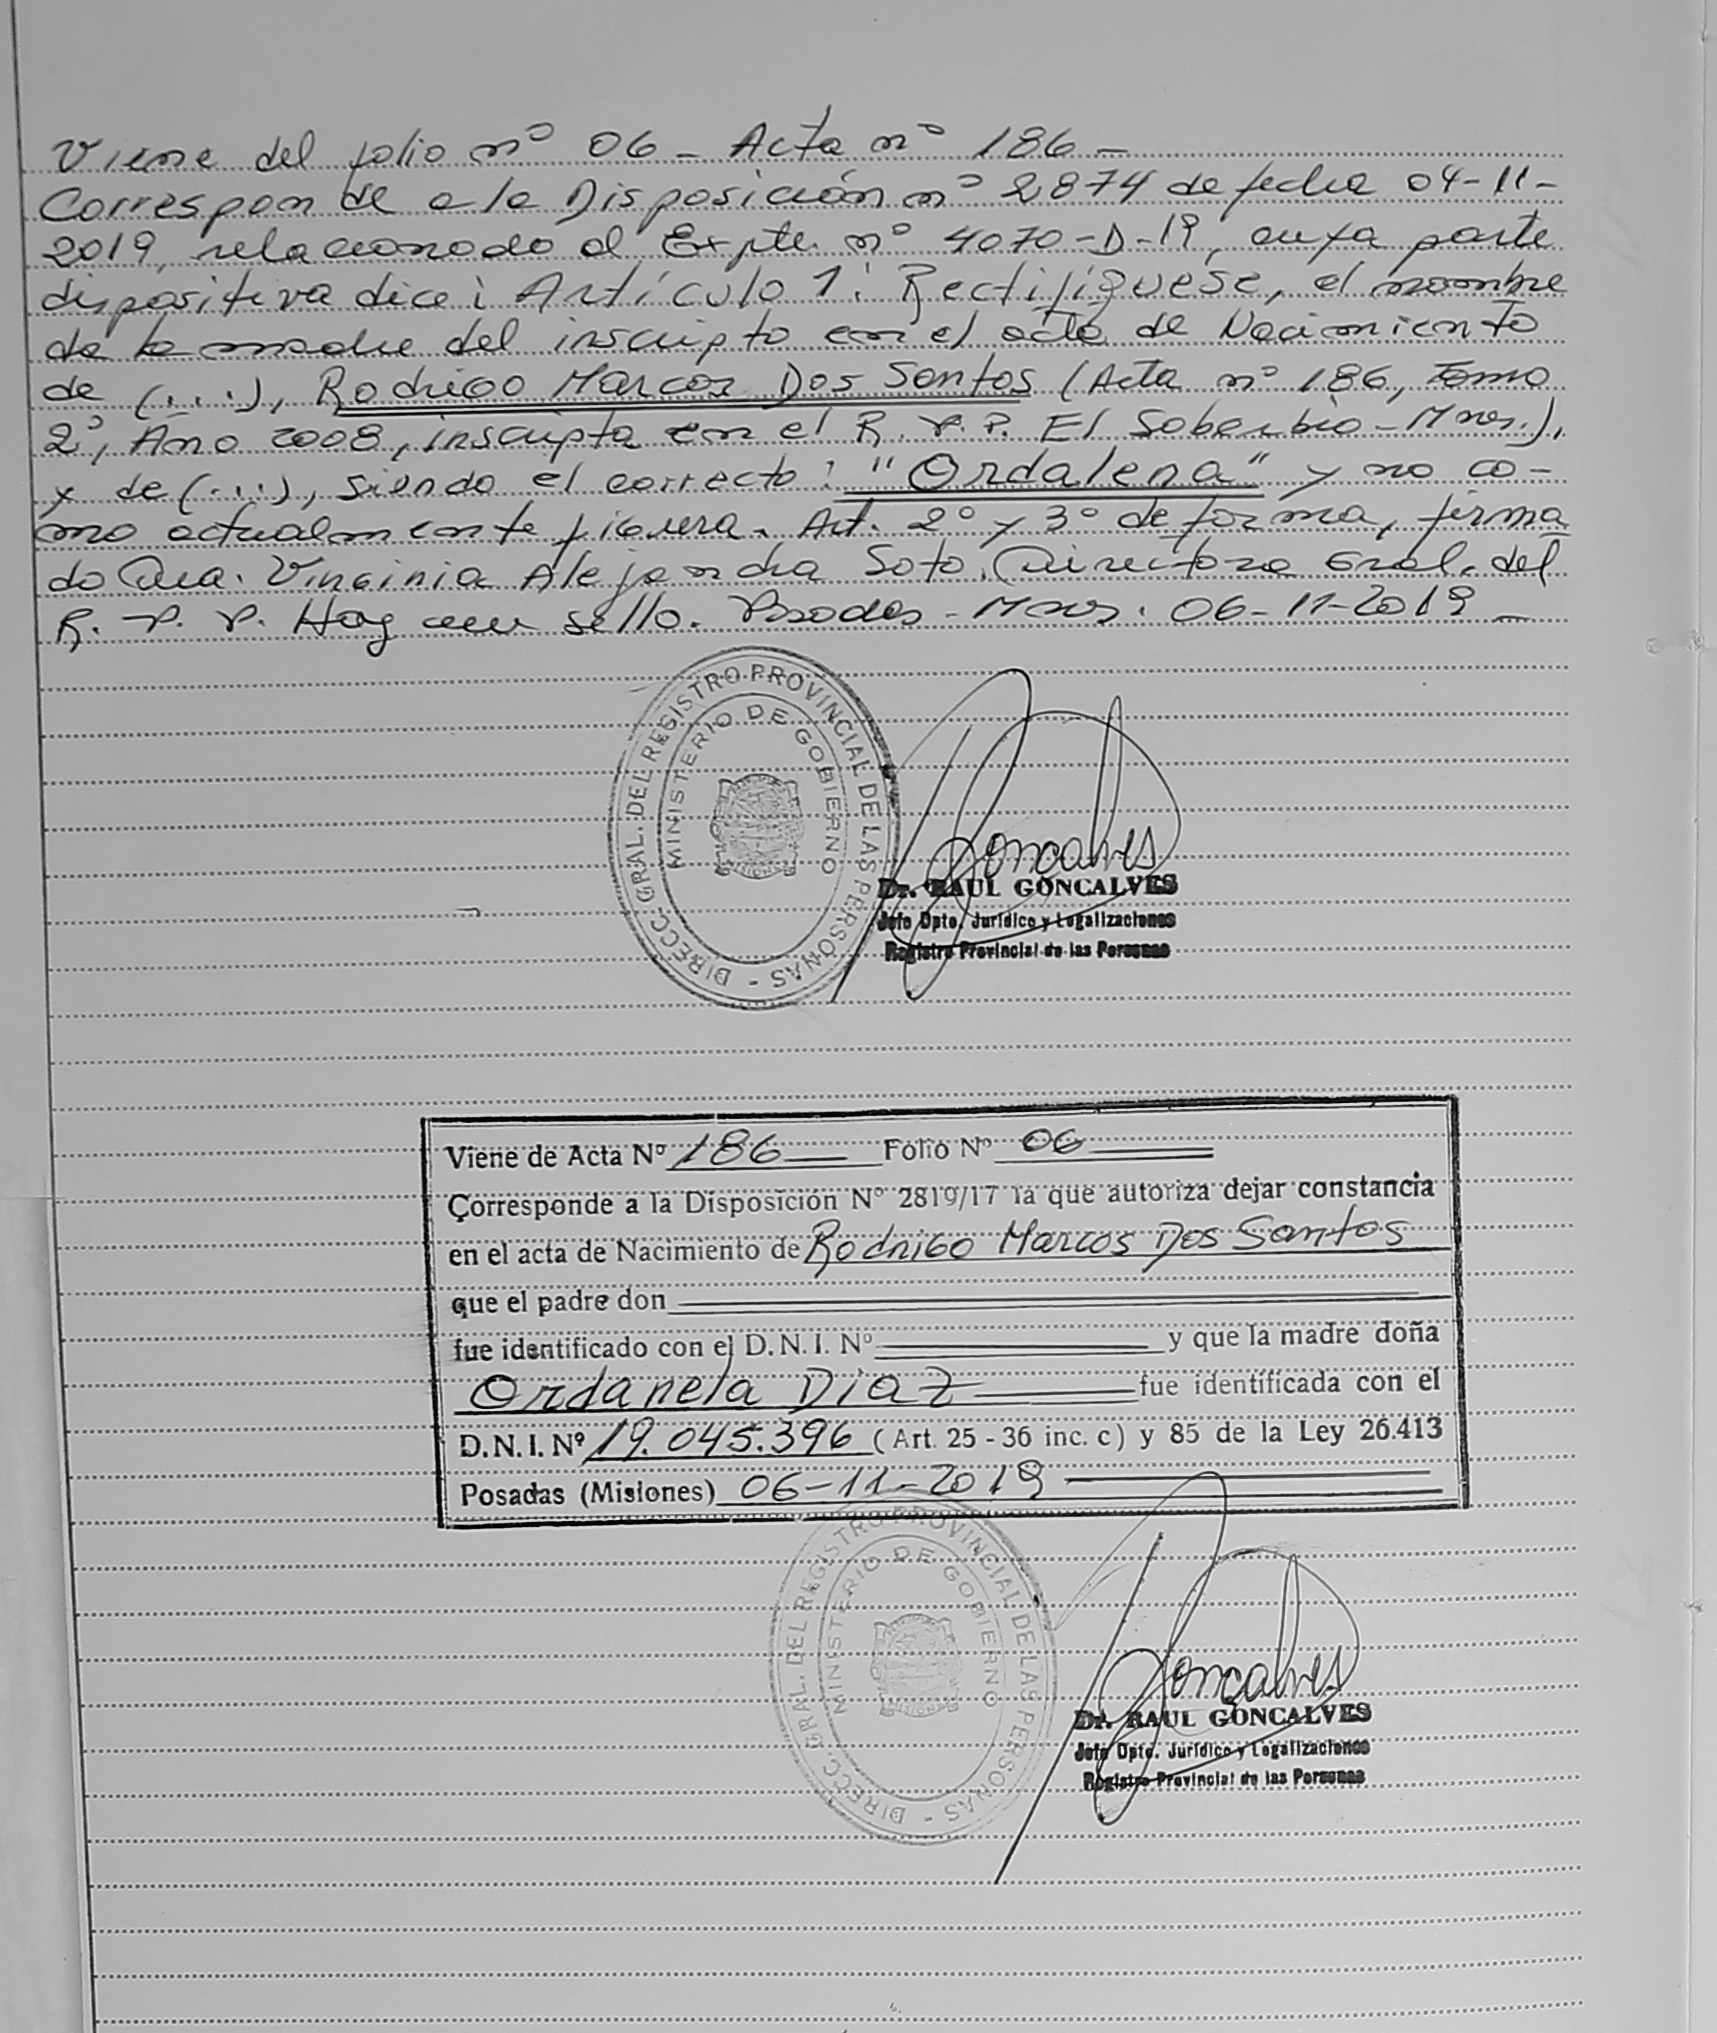 Viene del folio nº 06 - Acta nº 186 -
Correspon de a la Disposición nº 2874 de fecha 04-11-
2019, relacionado al Expte. nº 4070-D-19, cuya parte
dispositiva dice: Artículo 1: Rectifíquese, el nombre
de la madre del inscripto en el acta de Nacimiento
de (...), Rodrigo Marcos Dos Santos (Acta nº 186, Tomo
2º, Año 2008, inscripta en el R.P.P. El Soberbio - Mnes.),
y de (...), siendo el correcto: "Ordalena" y no co-
mo actualmente figura. Art. 2º y 3º de forma, firma
do Dra. Virginia Alejandra Soto. Directora Gral. del
R. P. P. Hay un sello. Posadas - Mnes. 06-11-2019 -
DIRECC. GRAL. DEL REGISTRO PROVINCIAL DE LAS PERSONAS -
MINISTERIO DE GOBIERNO
MISIONES
Goncalves
Dr. RAUL GONCALVES
Jefe Dpto. Jurídico y Legalizaciones
Registro Provincial de las Personas
Viene de Acta Nº 186 Folio Nº 06
Corresponde a la Disposición Nº 2819/17 la que autoriza dejar constancia
en el acta de Nacimiento de Rodrigo Marcos Dos Santos
que el padre don
fue identificado con el D.N.I. Nº y que la madre doña
Ordanela Diaz fue identificada con el
D.N.I. Nº 19.045.396 (Art. 25 - 36 inc. c) y 85 de la Ley 26.413
Posadas (Misiones) 06-11-2019
DIRECC. GRAL. DEL REGISTRO PROVINCIAL DE LAS PERSONAS -
MINISTERIO DE GOBIERNO
MISIONES
Goncalves
Dr. RAUL GONCALVES
Jefe Dpto. Jurídico y Legalizaciones
Registro Provincial de las Personas